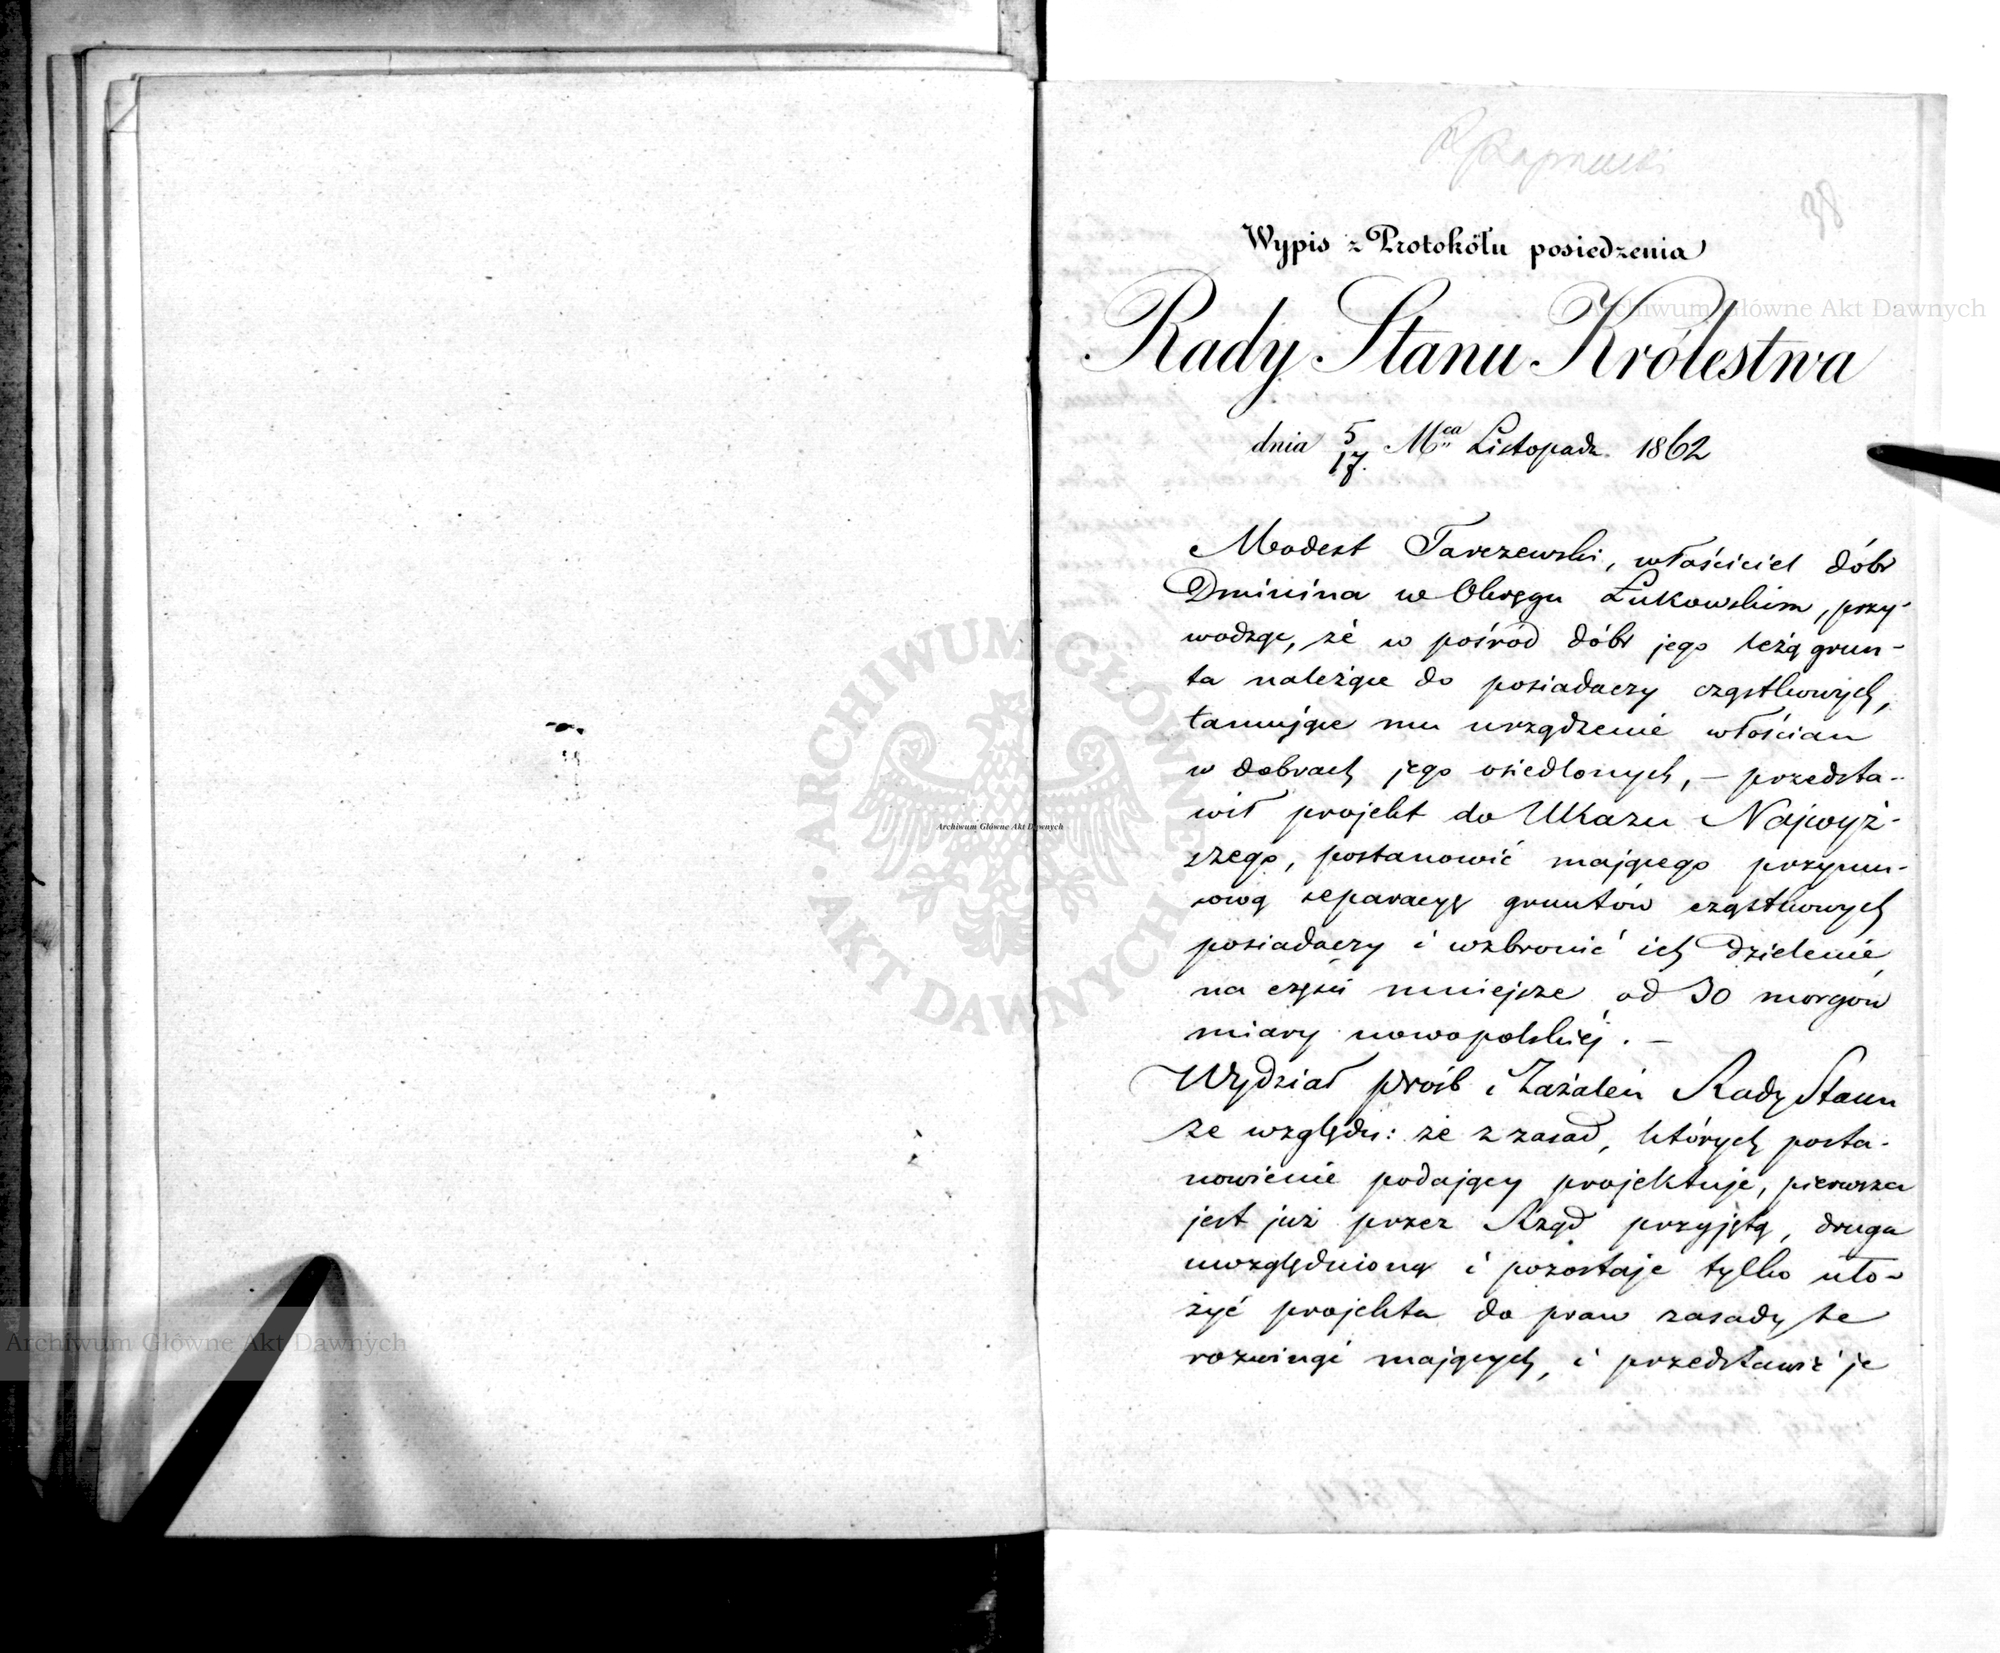 38
Wypis z Protokółu posiedzenia
Rady Stanu Królestwa
dnia 5/17. Mca Listopada 1862
Modest Tarczewski, właściciel dóbr
Dminina w Okręgu Łukowskim, przy-
wodząc, że w pośród dóbr jego leżą grun-
ta należące do posiadaczy cząstkowych,
tamujące mu urządzenie włościan
w dobrach jego osiedlonych, – przedsta-
wił projekt do Ukazu Najwyż-
szego, postanowić mającego przymu-
sową separacyę gruntów cząstkowych
posiadaczy i wzbronić ich dzielenie
na części mniejsze od 30 morgów
miary nowopolskiéj. –
Wydział próśb i Zażaleń Rady Stanu
ze względu: że z zasad, których posta-
nowienie podający projektuje, pierwsza
jest już przez Rząd przyjętą, druga
uwzględnioną i pozostaje tylko uło-
żyć projekta do praw zasady te
rozwinąć mających, i przedstawić je
Archiwum Główne Akt Dawnych
Archiwum Główne Akt Dawnych
Archiwum Główne Akt Dawnych
ARCHIWUM GŁÓWNE AKT DAWNYCH